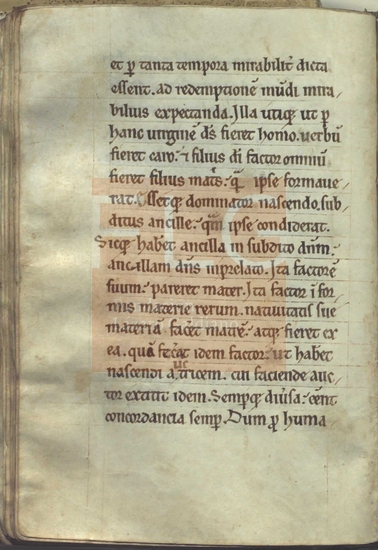 et ꝑ tanta tempora mirabilit̉ dicta
essent. ad redemptionē mūdi mira-
bilius expectanda. Illa utiqꝫ ut ꝑ
hanc uirginē ds̄ fieret homo. uerbū
fieret caro. ⁊ filius dī factor omniū
fieret filius mat̉s. quā ipse formaue-
rat. Essetqꝫ dominator nascendo. sub-
ditus ancille. quam ipse condiderat.
Sicqꝫ habet̉ ancilla in subdito dn̄m.
ancillam dn̄s in prelato. Ita factorē
suum. pareret mater. Ita factor ī for-
mis materie rerum. natiuitatis sue
materiā facet̉ matrē. atqꝫ fieret ex
ea. quā fec̉at idem factor. ut habet̉
nascendi auctricem. cui faciende auc-
tor extitit idem. Sempqꝫ diūsa. c̉ent
concordancia semp̲. Dum ꝓ huma